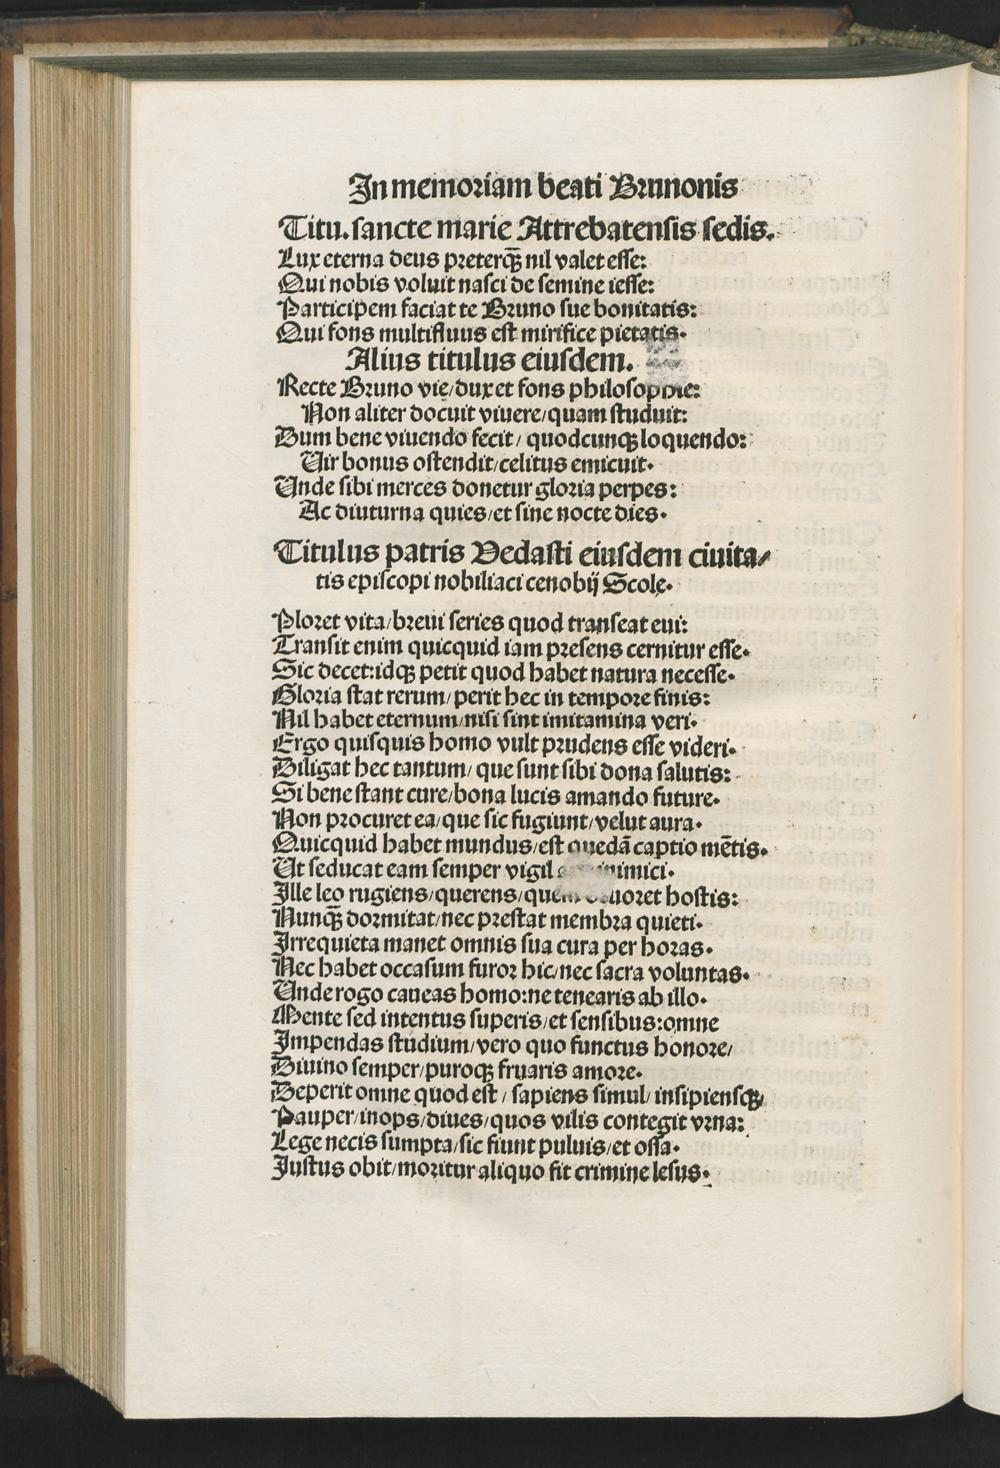 In memoriam beati Brunonis
Titu. sancte marie Attrebatensis sedis.
Lux eterna deus preterq̃ nil valet esse:
Qui nobis voluit nasci de semine iesse:
Participem faciat te Bruno sue bonitatis:
Qui fons multifluus est mirifice pietatis.
Alius titulus eiusdem.
Recte Bruno vie/dux et fons philosophie:
Non aliter docuit viuere/quam studuit:
Dum bene viuendo fecit/ quodcunqꝫ loquendo:
Uir bonus ostendit/celitus emicuit.
Unde sibi merces donetur gloria perpes:
Ac diuturna quies/et sine nocte dies.
Titulus patris Vedasti eiusdem ciuita/
tis episcopi nobiliaci cenobij Scole.
Ploret vita/breui series quod transeat eui:
Transit enim quicquid iam presens cernitur esse.
Sic decet:idqꝫ petit quod habet natura necesse.
Gloria stat rerum/perit hec in tempore finis:
Nil habet eternum/nisi sint imitamina veri.
Ergo quisquis homo vult prudens esse videri.
Diligat hec tantum/ que sunt sibi dona salutis:
Si bene stant cure/bona lucis amando future.
Non procuret ea/que sic fugiunt/velut aura.
Quicquid habet mundus/est quedã captio mẽtis.
Ut seducat eam semper vigil inimici.
Ille leo rugiens/querens/quem deuoret hostis:
Nunq̃ dormitat/nec prestat membra quieti.
Irrequieta manet omnis sua cura per horas.
Nec habet occasum furor hic/nec sacra voluntas.
Unde rogo caueas homo:ne tenearis ab illo.
Mente sed intentus superis/et sensibus:omne
Impendas studium/vero quo functus honore/
Diuino semper/puroqꝫ fruaris amore.
Deperit omne quod est/ sapiens simul/ insipiensqꝫ/
Pauper/inops/diues/quos vilis contegit vrna:
Lege necis sumpta/sic fiunt puluis/et ossa.
Justus obit/moritur aliquo fit crimine lesus.